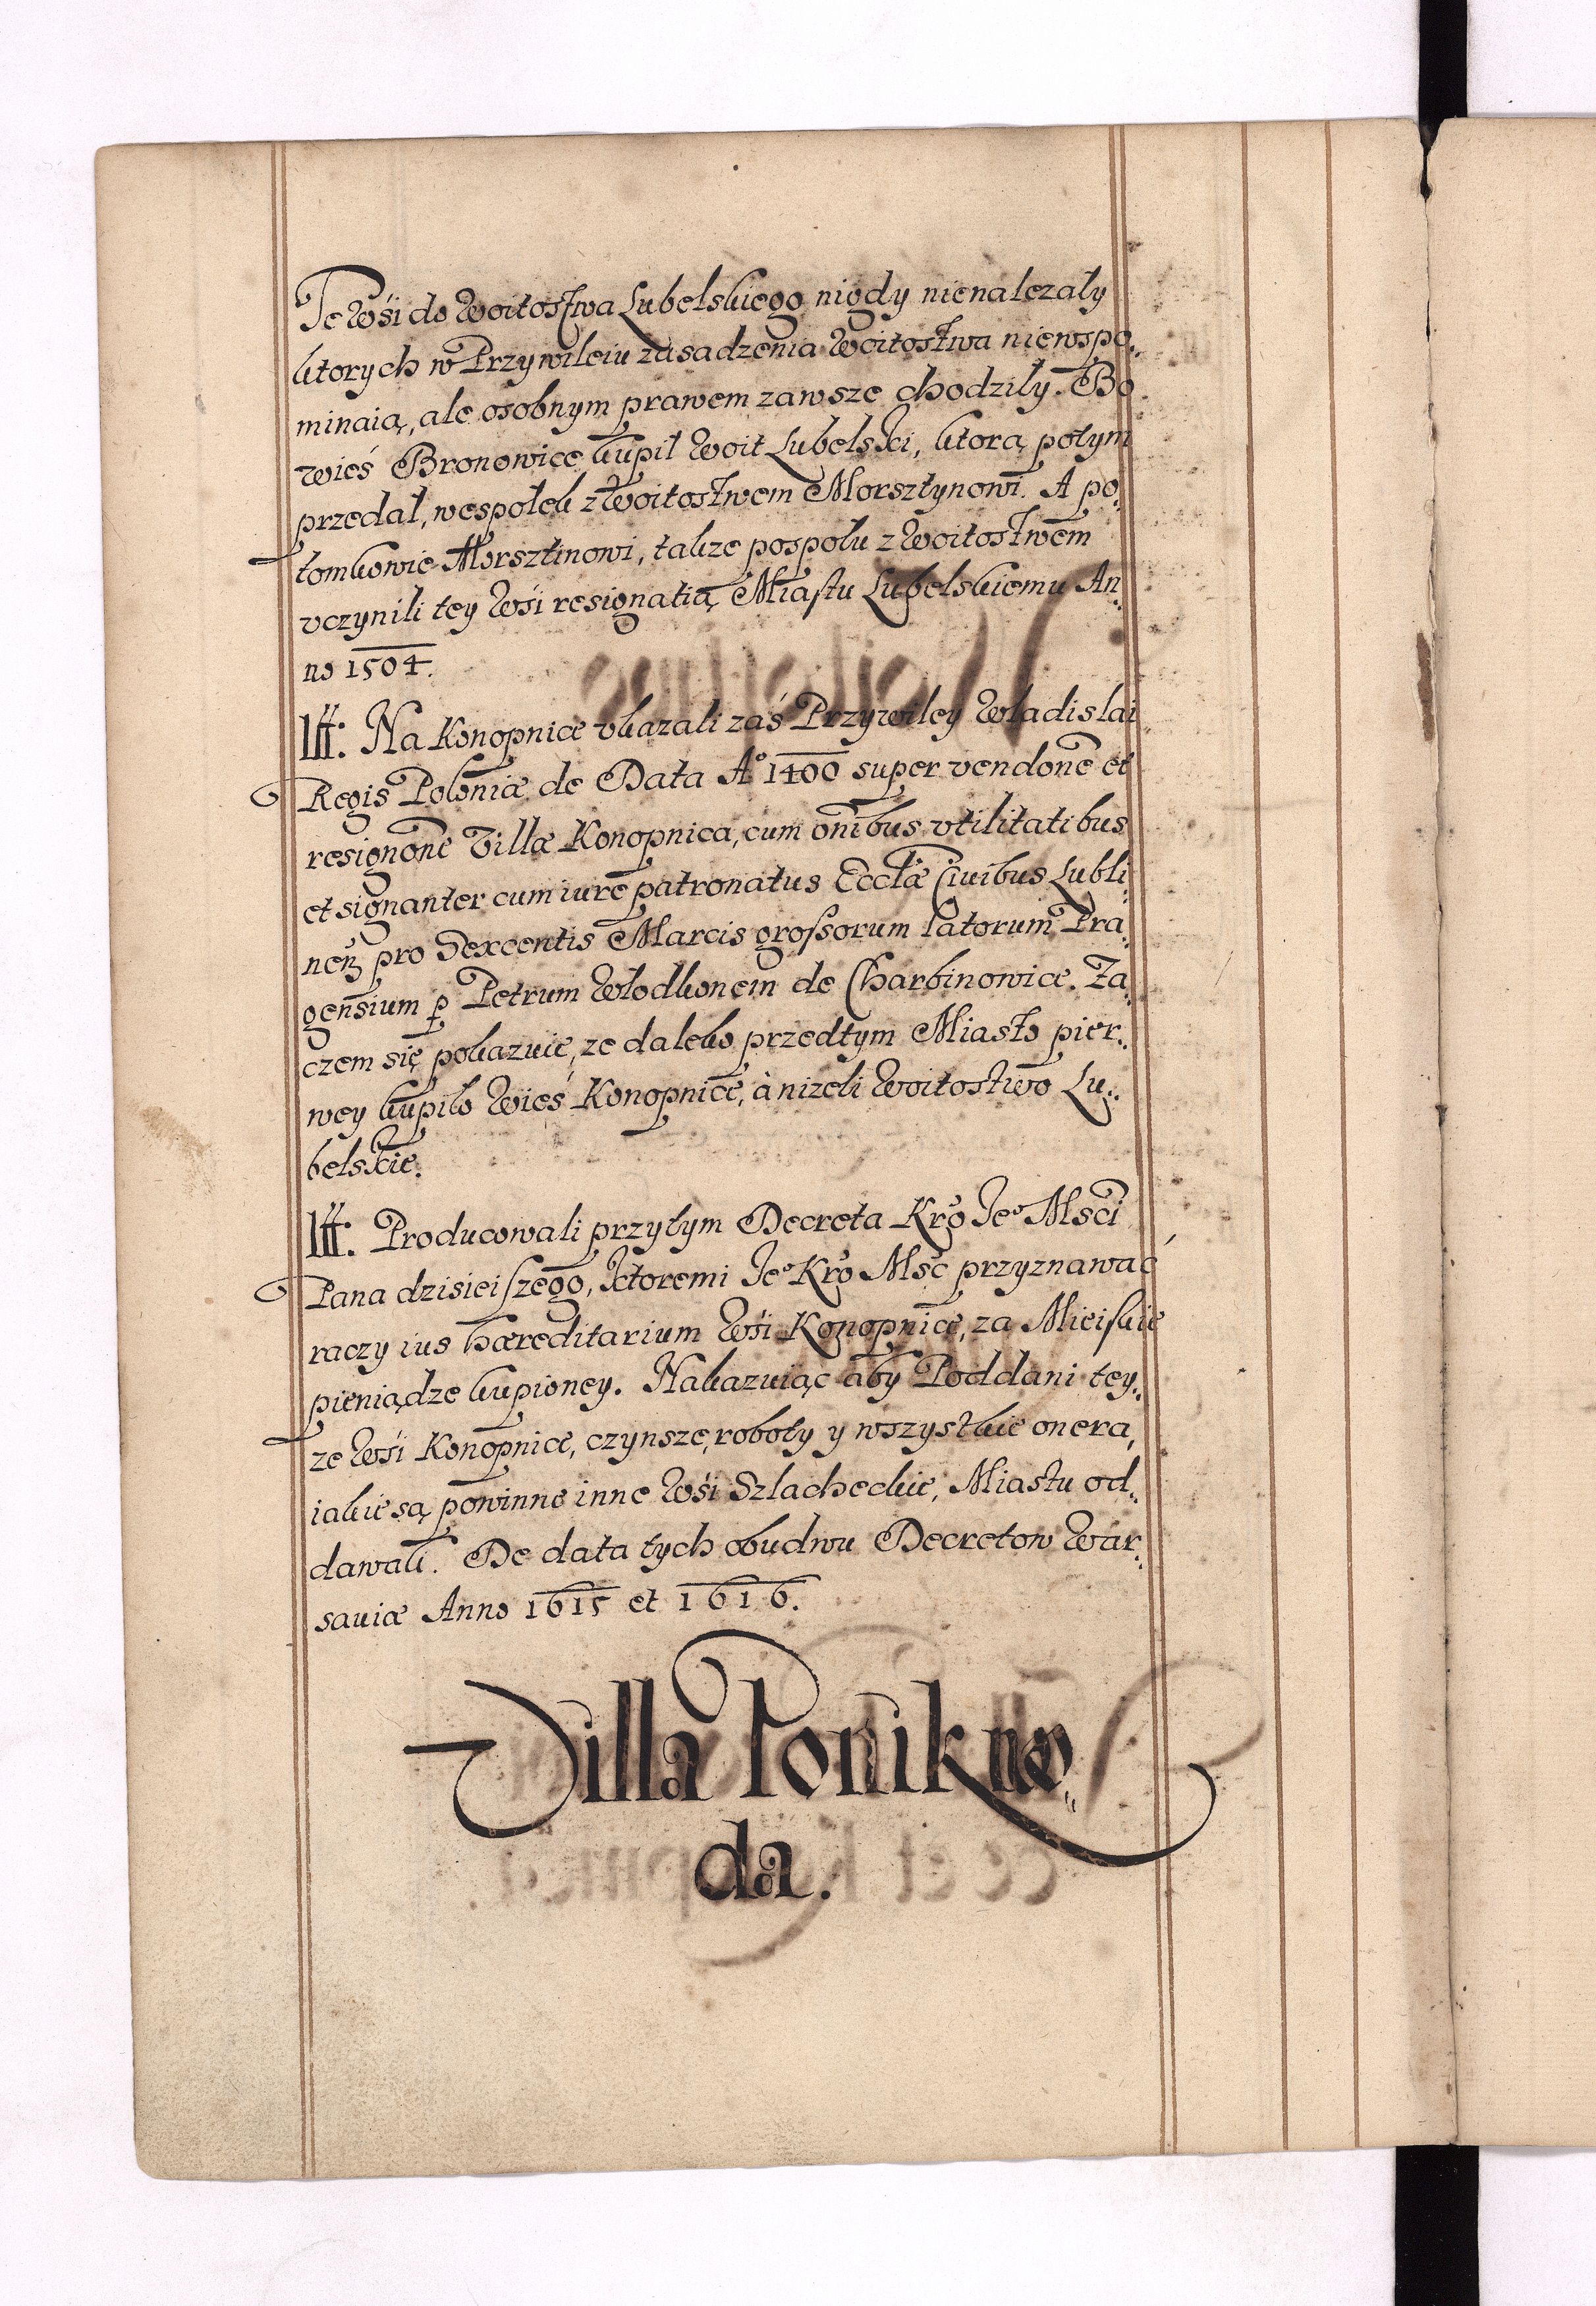 Te Wśi do Woitostwa Lubelskiego nigdy nienalezały
ktorych w Przywileiu zasadzenia Woitostwa niewspo„
minaią, ale osobnym prawem zawsze chodziły. Bo
wieś Bronowice kupił Woit Lubelski, ktorą potym
przedał, wespołek z Woitostwem Morsztynowi. A po„
tomkowie Morsztinowi, takze pospołu z Woitostwem
vczynili tey Wśi resignatią Miastu Lubelskiemu An„
no 1504.
Itt: Na Konopnice vkazali zaś Przywiley Wladislai
Regis Poloniæ de Data A° 1400 super vendone et
resignone Villæ Konopnica, cum onibus vtilitatibus
et signanter cum iure patronatus Ecclæ Ciuibus Lubli„
neñ pro Sexcentis Marcis grossorum latorum Pra„
gensium p Petrum Wlodkonem de Charbinowice. Za„
czem się pokazuie, ze daleko przedtym Miasto pier„
wey kupiło Wieś Konopnice, à nizeli Woitostwo Lu„
belskie.
Itt: Producowali przytym Decreta Kro Je° Msci
Pana dzisieiszego, ktoremi Je° Kro Msc przyznawać
raczy ius hæreditarium Wśi Konopnice, za Mieiskie
pieniądze kupioney. Nakazuiąc aby Poddani tey„
ze Wśi Konopnice, czynsze, roboty y wszystkie onera,
iakie są powinne inne Wśi Szlacheckie, Miastu od„
dawali. De data tych obudwu Decretow War„
sauiæ Anno 1615 et 1616.
Villa Ponikwo„
da.